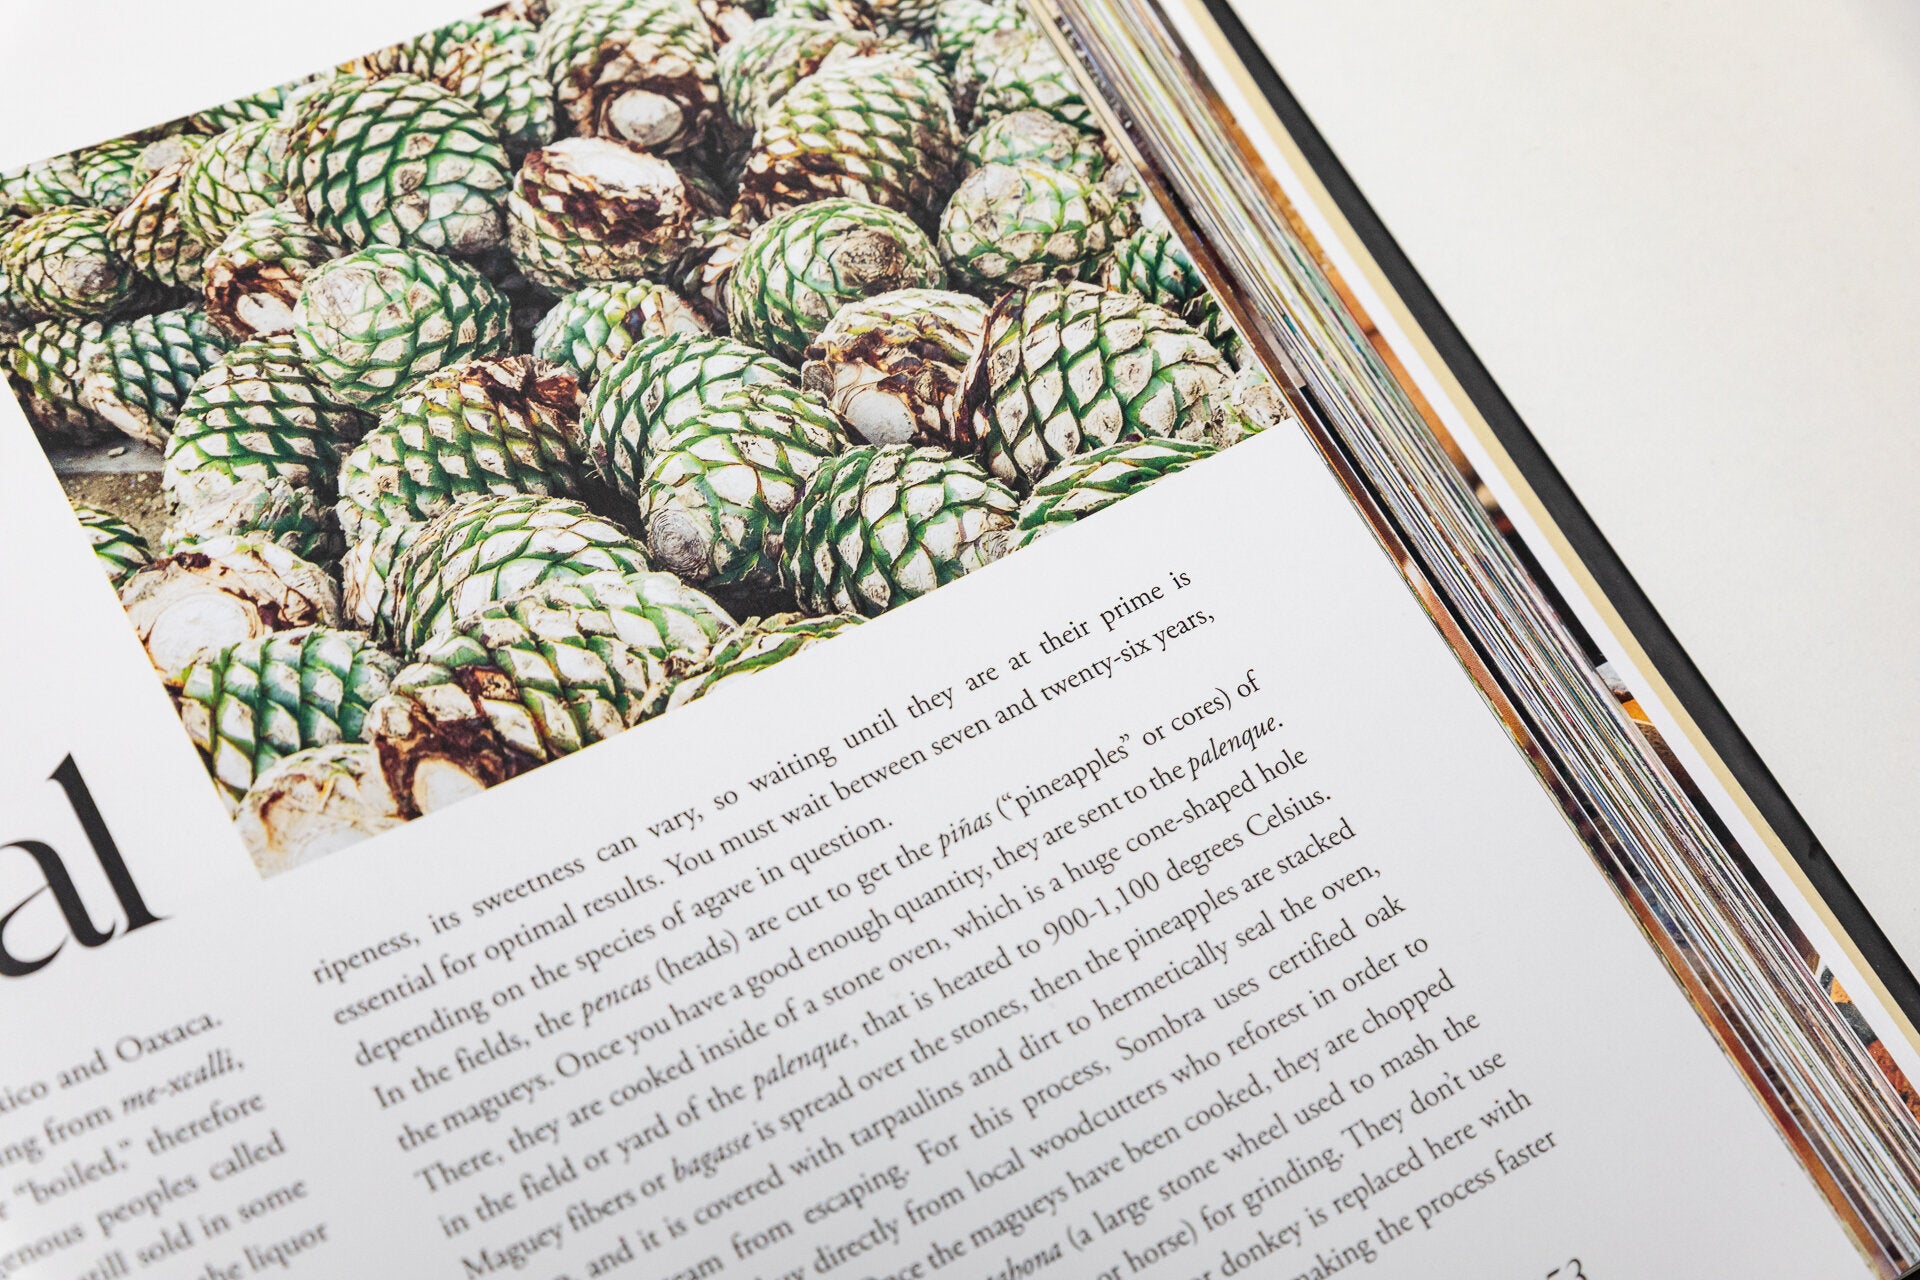 al
xico and Oaxaca.
ing from me-xcalli,
"boiled," therefore
genous peoples called
still sold in some
he liquor
ripeness, its sweetness can vary, so waiting until they are at their prime is
essential for optimal results. You must wait between seven and twenty-six years,
depending on the species of agave in question.
In the fields, the pencas (heads) are cut to get the piñas (“pineapples” or cores) of
the magueys. Once you have a good enough quantity, they are sent to the palenque.
There, they are cooked inside of a stone oven, which is a huge cone-shaped hole
in the field or yard of the palenque, that is heated to 900-1,100 degrees Celsius.
Maguey fibers or bagasse is spread over the stones, then the pineapples are stacked
and it is covered with tarpaulins and dirt to hermetically seal the oven,
eam from escaping. For this process, Sombra uses certified oak
directly from local woodcutters who reforest in order to
nce the magueys have been cooked, they are chopped
ahona (a large stone wheel used to mash the
or horse) for grinding. They don't use
or donkey is replaced here with
making the process faster
53